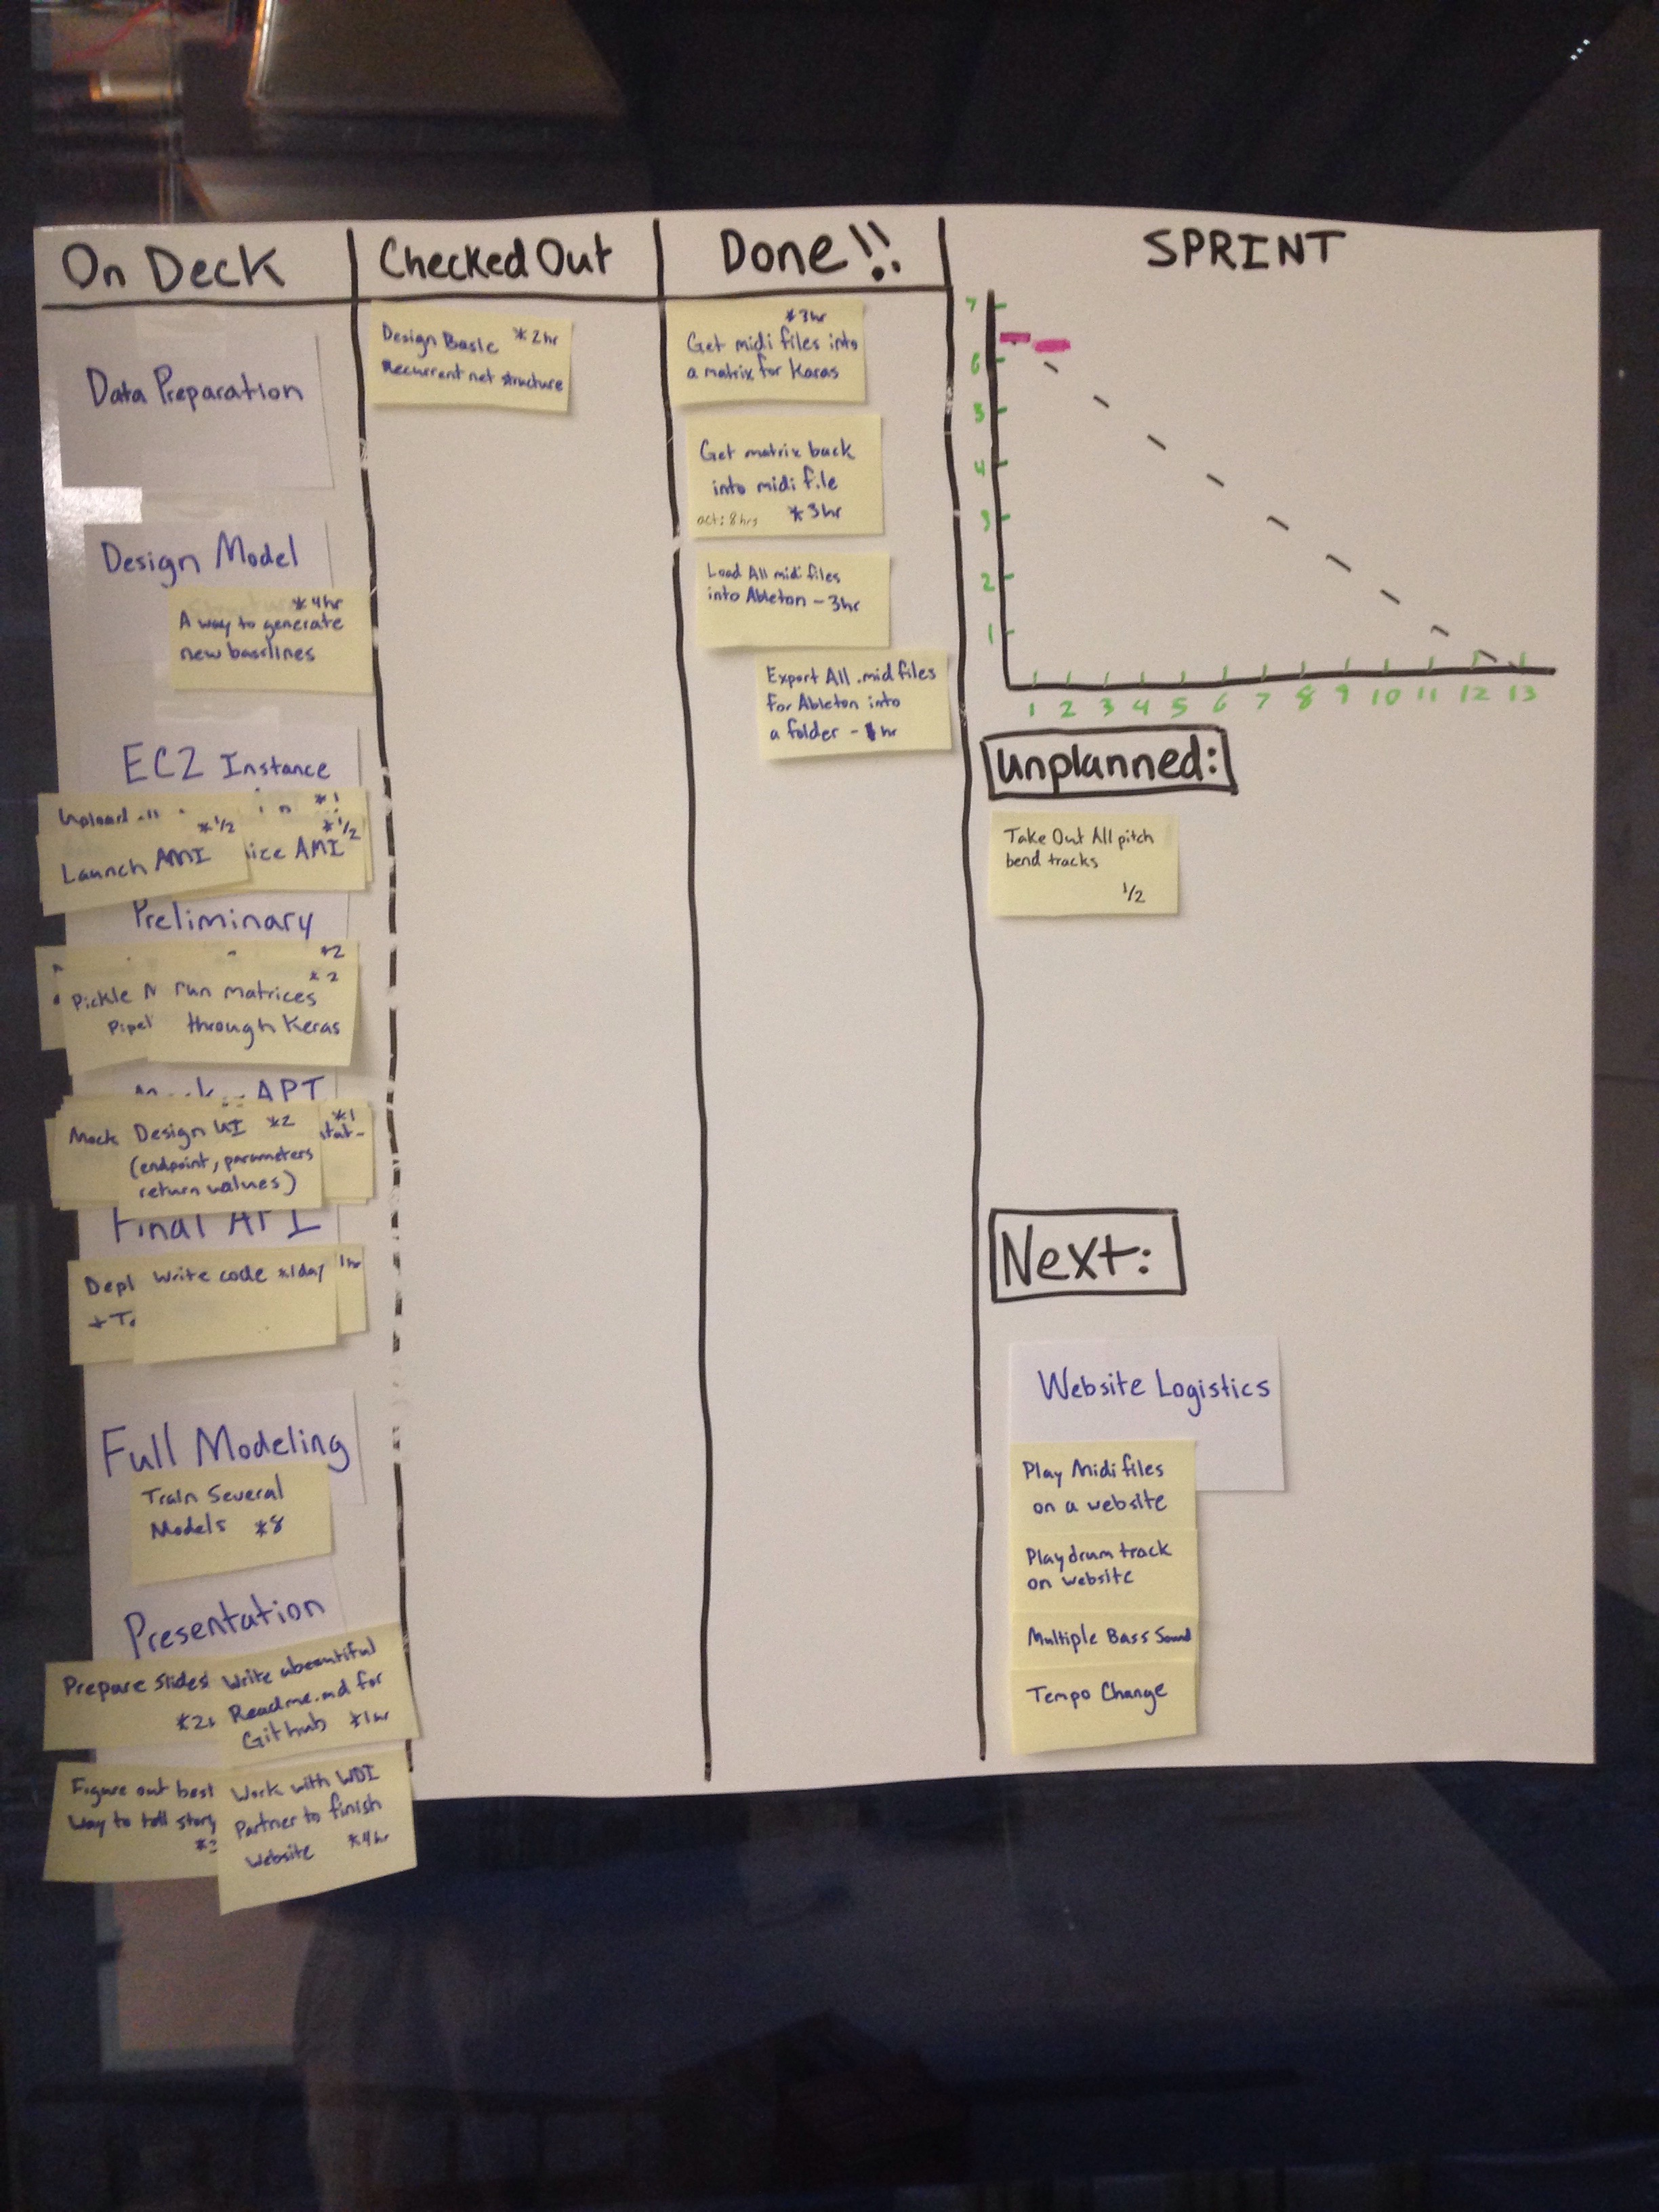 On Deck
Checked Out
Done!!
SPRINT
Data Preparation
Design Model
*4hr
A way to generate
new basslines
EC2 Instance
Upload
*1
*1/2
Launch AMI
*1/2
AMI
Preliminary
*2
*2
Pickle
run matrices
through Keras
API
Mock
Design UI *2
(endpoint, parameters
return values)
*1
Final API
Depl
Write code *1day
1hr
Full Modeling
Train Several
Models *8
Presentation
Prepare slides
Write a beautiful
Readme.md for
Github *1hr
Figure out best
way to tell story
Work with WDI
Partner to finish
website *4hr
Design Basic *2hr
Recurrent net structure
*3hr
Get midi files into
a matrix for Karas
Get matrix back
into midi file
act: 8hrs *3hr
Load All midi files
into Ableton - 3hr
Export All .mid files
For Ableton into
a folder - 1hr
7
6
5
4
3
2
1
1 2 3 4 5 6 7 8 9 10 11 12 13
Unplanned:
Take Out All pitch
bend tracks
1/2
Next:
Website Logistics
Play Midi files
on a website
Play drum track
on website
Multiple Bass Sound
Tempo Change